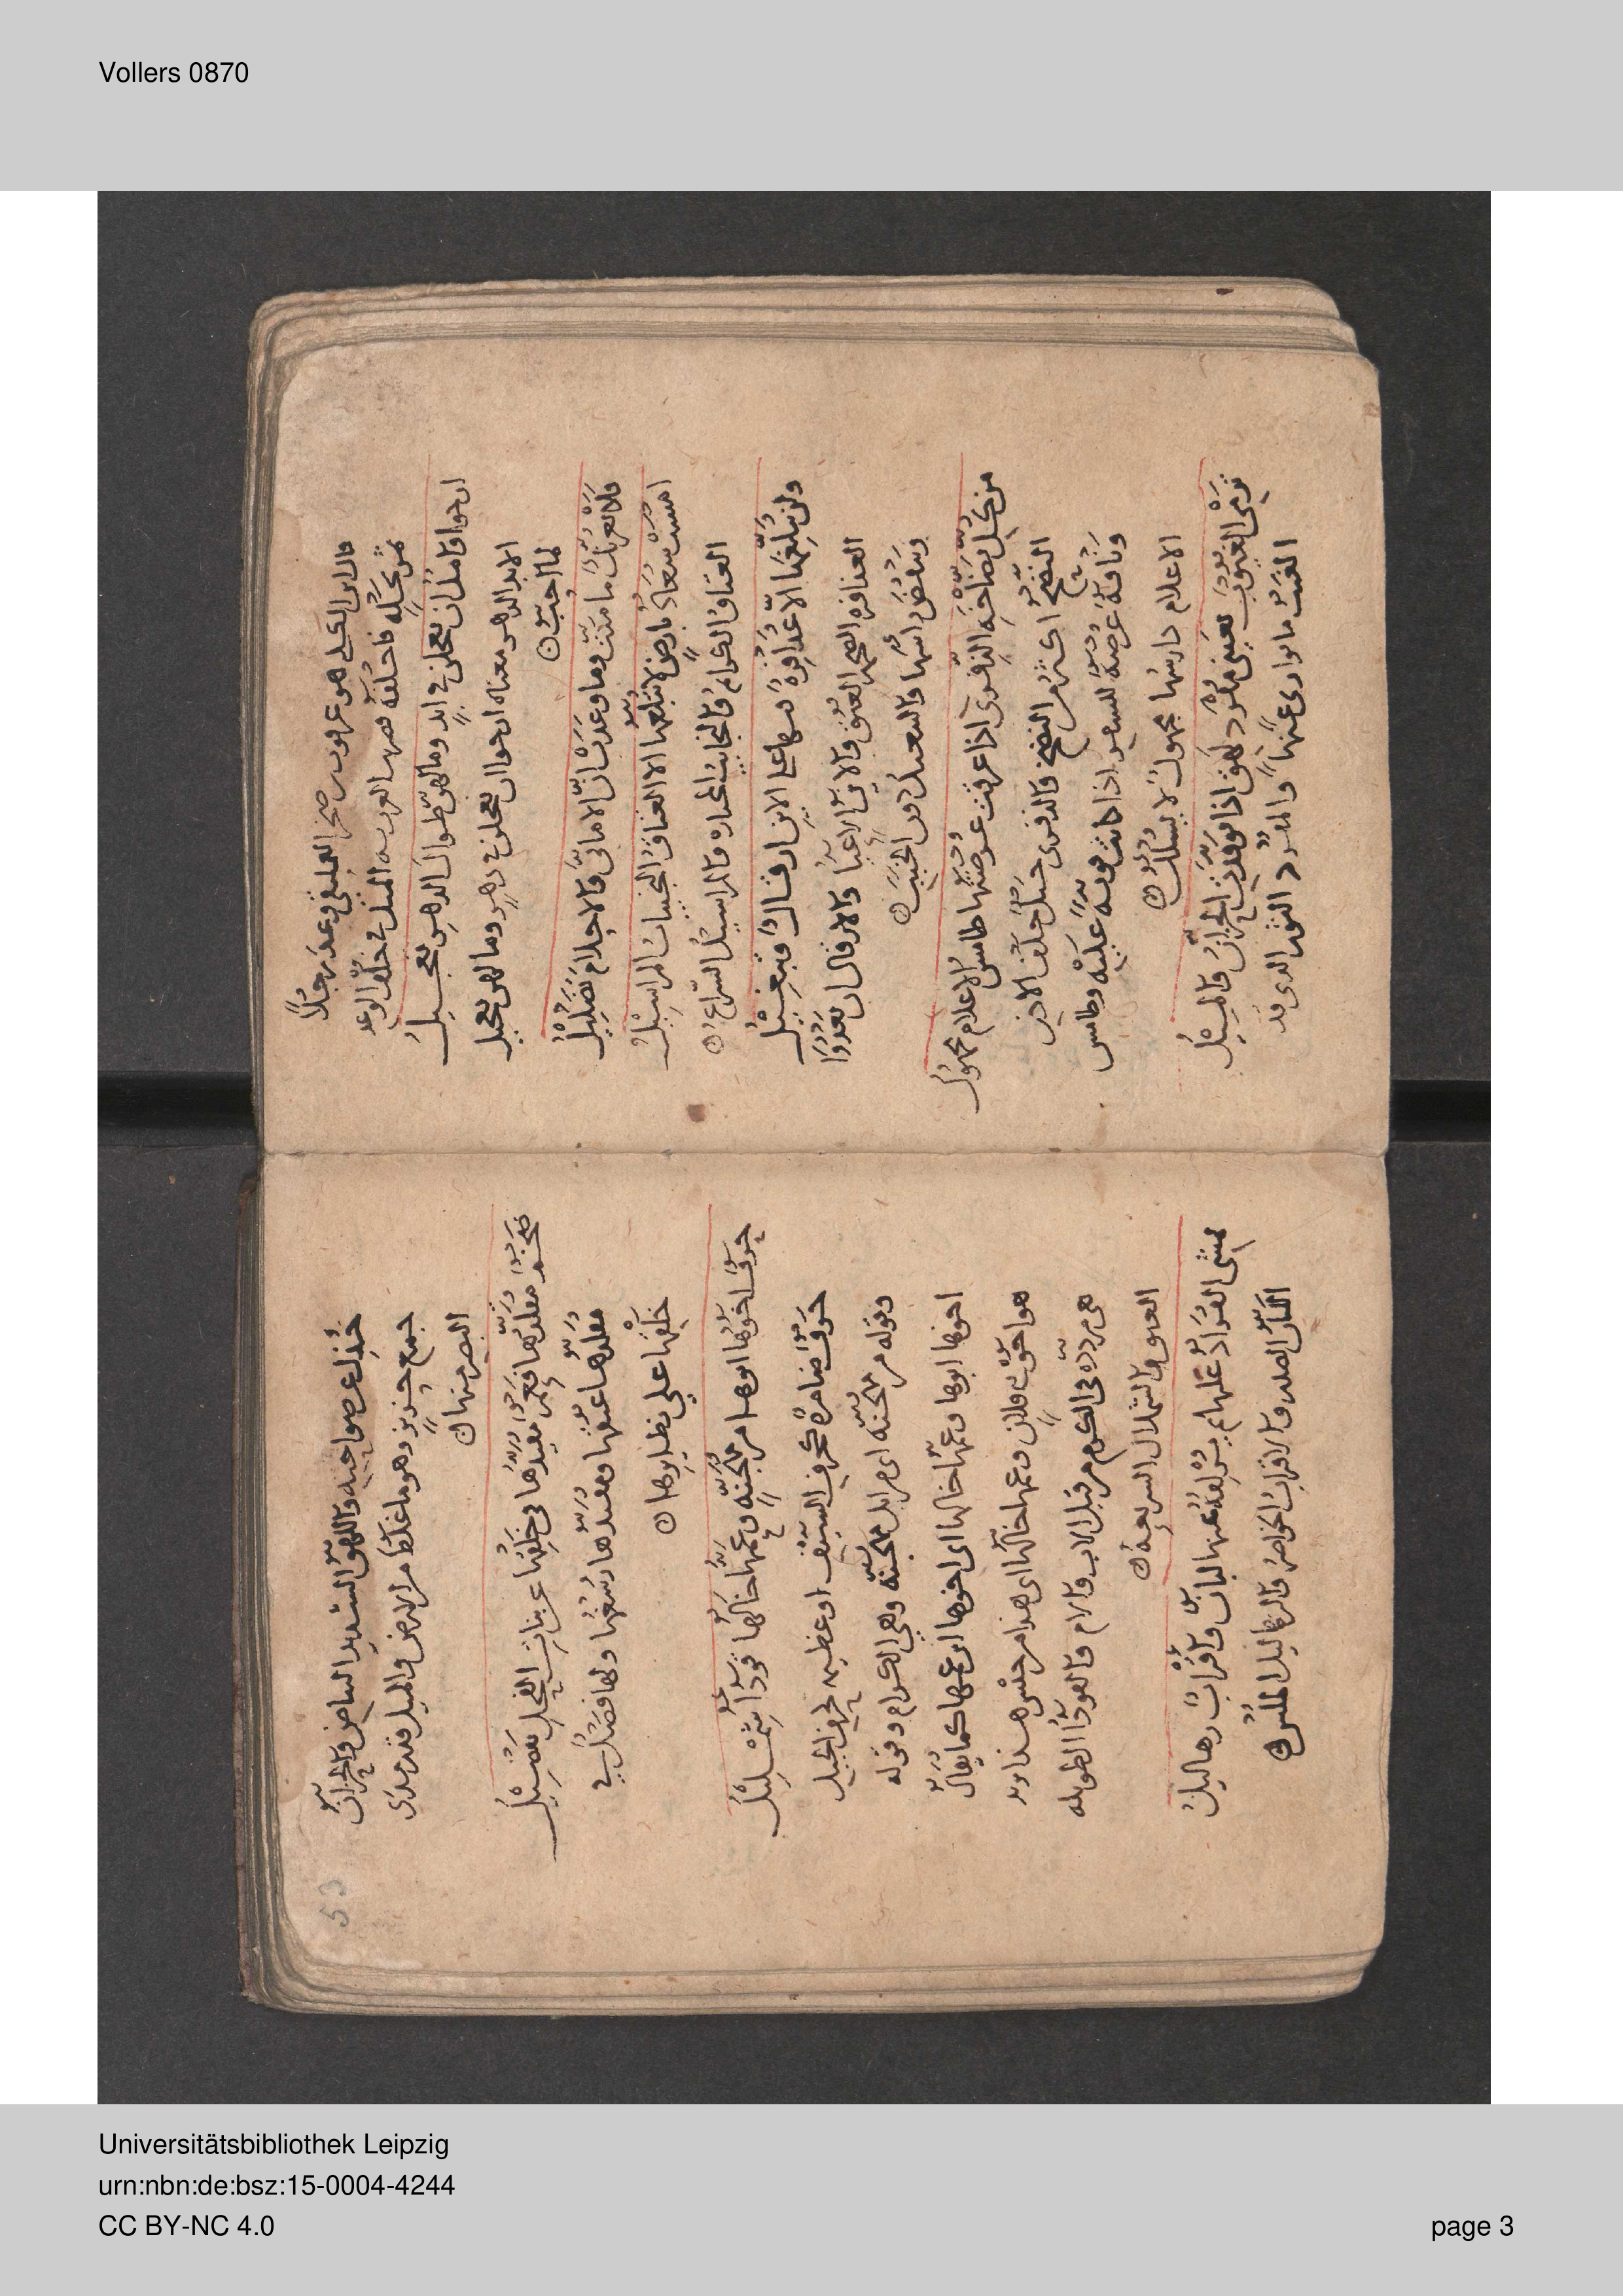 Vollers 0870
قال ابن الكلبي هو عرقوب بن صخر العمليقي وعد رجلاً
ثمر نخلةٍ فاخلفه فضربت العرب به المثل في خلف الوعد
ارجوا وآمُلُ ان يعجلن في ابدٍ وما لهنّ طوال الدهر تعجيلُ
الابد الدهر معناه ارجو ان يعجلن في دهرٍ وما لهن تعجيل
لما احبّ
فلا يغرنك ما منّت وما وعدت انّ الامانيّ والاحلام تضليلُ
امست سعاد بارضٍ لا تبلغها الا العتاق النجيبات المراسيلُ
العتاق الكرام والنجائب الخياره والمراسيل السراع
ولن تبلّغها الا عذافرةٌ فيها على الاين ارقالٌ وتبغيلُ
العذافره الضخمه العنق والاين الاعيا والارقال ان تعدوا
وتنفض راسها والتبغيل دون الخبب
من كل نضاخة الذفرى اذا عرقت عرضتها طامس الاعلام مجهول
النضخ اكثر من النضح والذفرى حيد خلف الاذن
وناقة عرضة للسفر اذا كانت قوية عليه وطامس
الاعلام دارسها مجهول لا يسلك
ترمي الغيوب بعيني مفرد لهق اذا توقدت الحزان والميلُ
الغيب ما توارى عنها والمفرد الثور الذي قد
53
خذل عن صواحبه واللهق الشديد البياض والحزان
جمع حزيز وهو ما غلظ من الارض والميل قدر مدى
البصر منها
ضخم مقلدها فعم مقيدها في خلقها عن بنات الفحل تفضيلُ
مقلدها عنقها ومقيدها رسغها ولها فضل في
خلقها على نظايرها
حرف اخوها ابوها من مهجنة وعمها خالها قوداء شمليلُ
حرف ضامرة كحرف السيف او عظيمه كحرف الجبل
وقوله من مهجنة اى من ابل مهجنة وهي الكرام وقوله
اخوها ابوها وعمها خالها اى اخوها ابن عمها كما يقال
هو اخو فلان وعمها خالها اى هذا من جنس هذا يريد
هى مرددة فى الكرم من قبل الاب والام والقوداء الطويله
العنق والشملال السريعة
تمشي القراد عليها ثم يزلقه عنها لبان واقراب زهاليلُ
اللبان الصدر والاقراب الخواصر والزهاليل الملس
Universitätsbibliothek Leipzig
urn:nbn:de:bsz:15-0004-4244
CC BY-NC 4.0
page 3